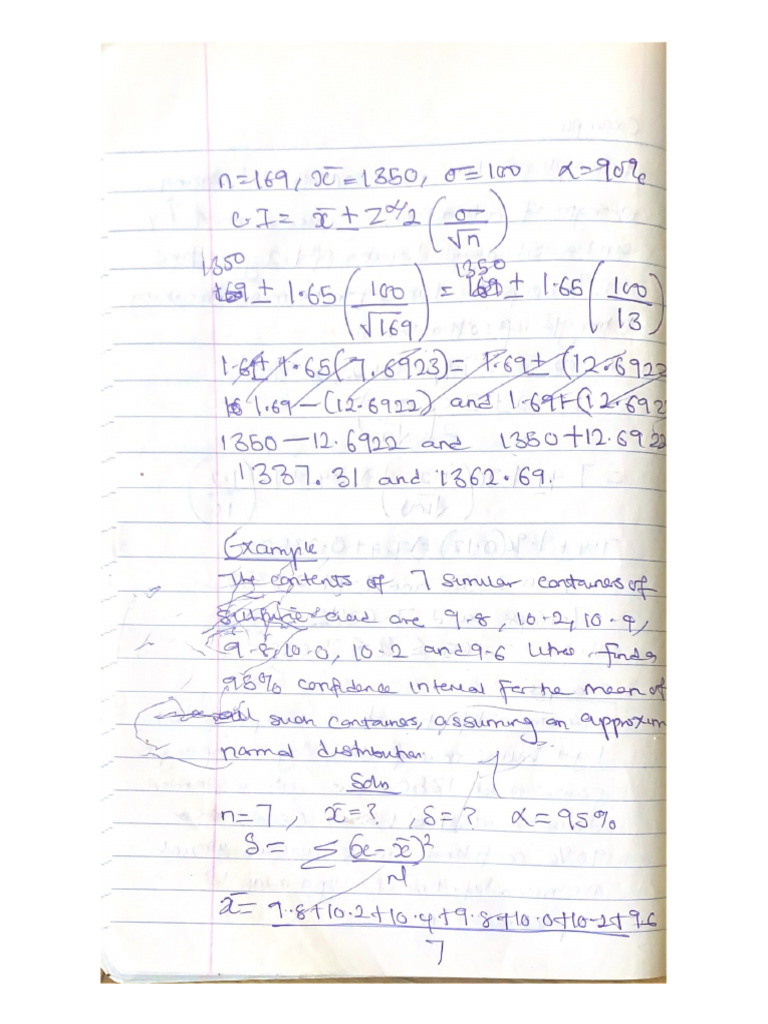 n=169, x̄=1350, σ=100 α=90%
C.I= x̄ ± Z α/2 (σ/√n)
1350 1350
169 ± 1.65 (100/√169) = 169 ± 1.65 (100/13)
1.69± 1.65(7.6923)= 1.69± (12.6922
1.69-(12.6922) and 1.69+(12.692
1350-12.6922 and 1350+12.6922
1337.31 and 1362.69.
Example
The contents of 7 similar containers of
acid are 9.8, 10.2, 10.4,
9.8, 10.0, 10.2 and 9.6 litres. find a
95% confidence interval for the mean of
all such containers, assuming an approxim
normal distribution.
Soln
n=7, x̄=?, S=? α=95%
S= Σ(x-x̄)²/n-1
x̄= 9.8+10.2+10.4+9.8+10.0+10.2+9.6
7